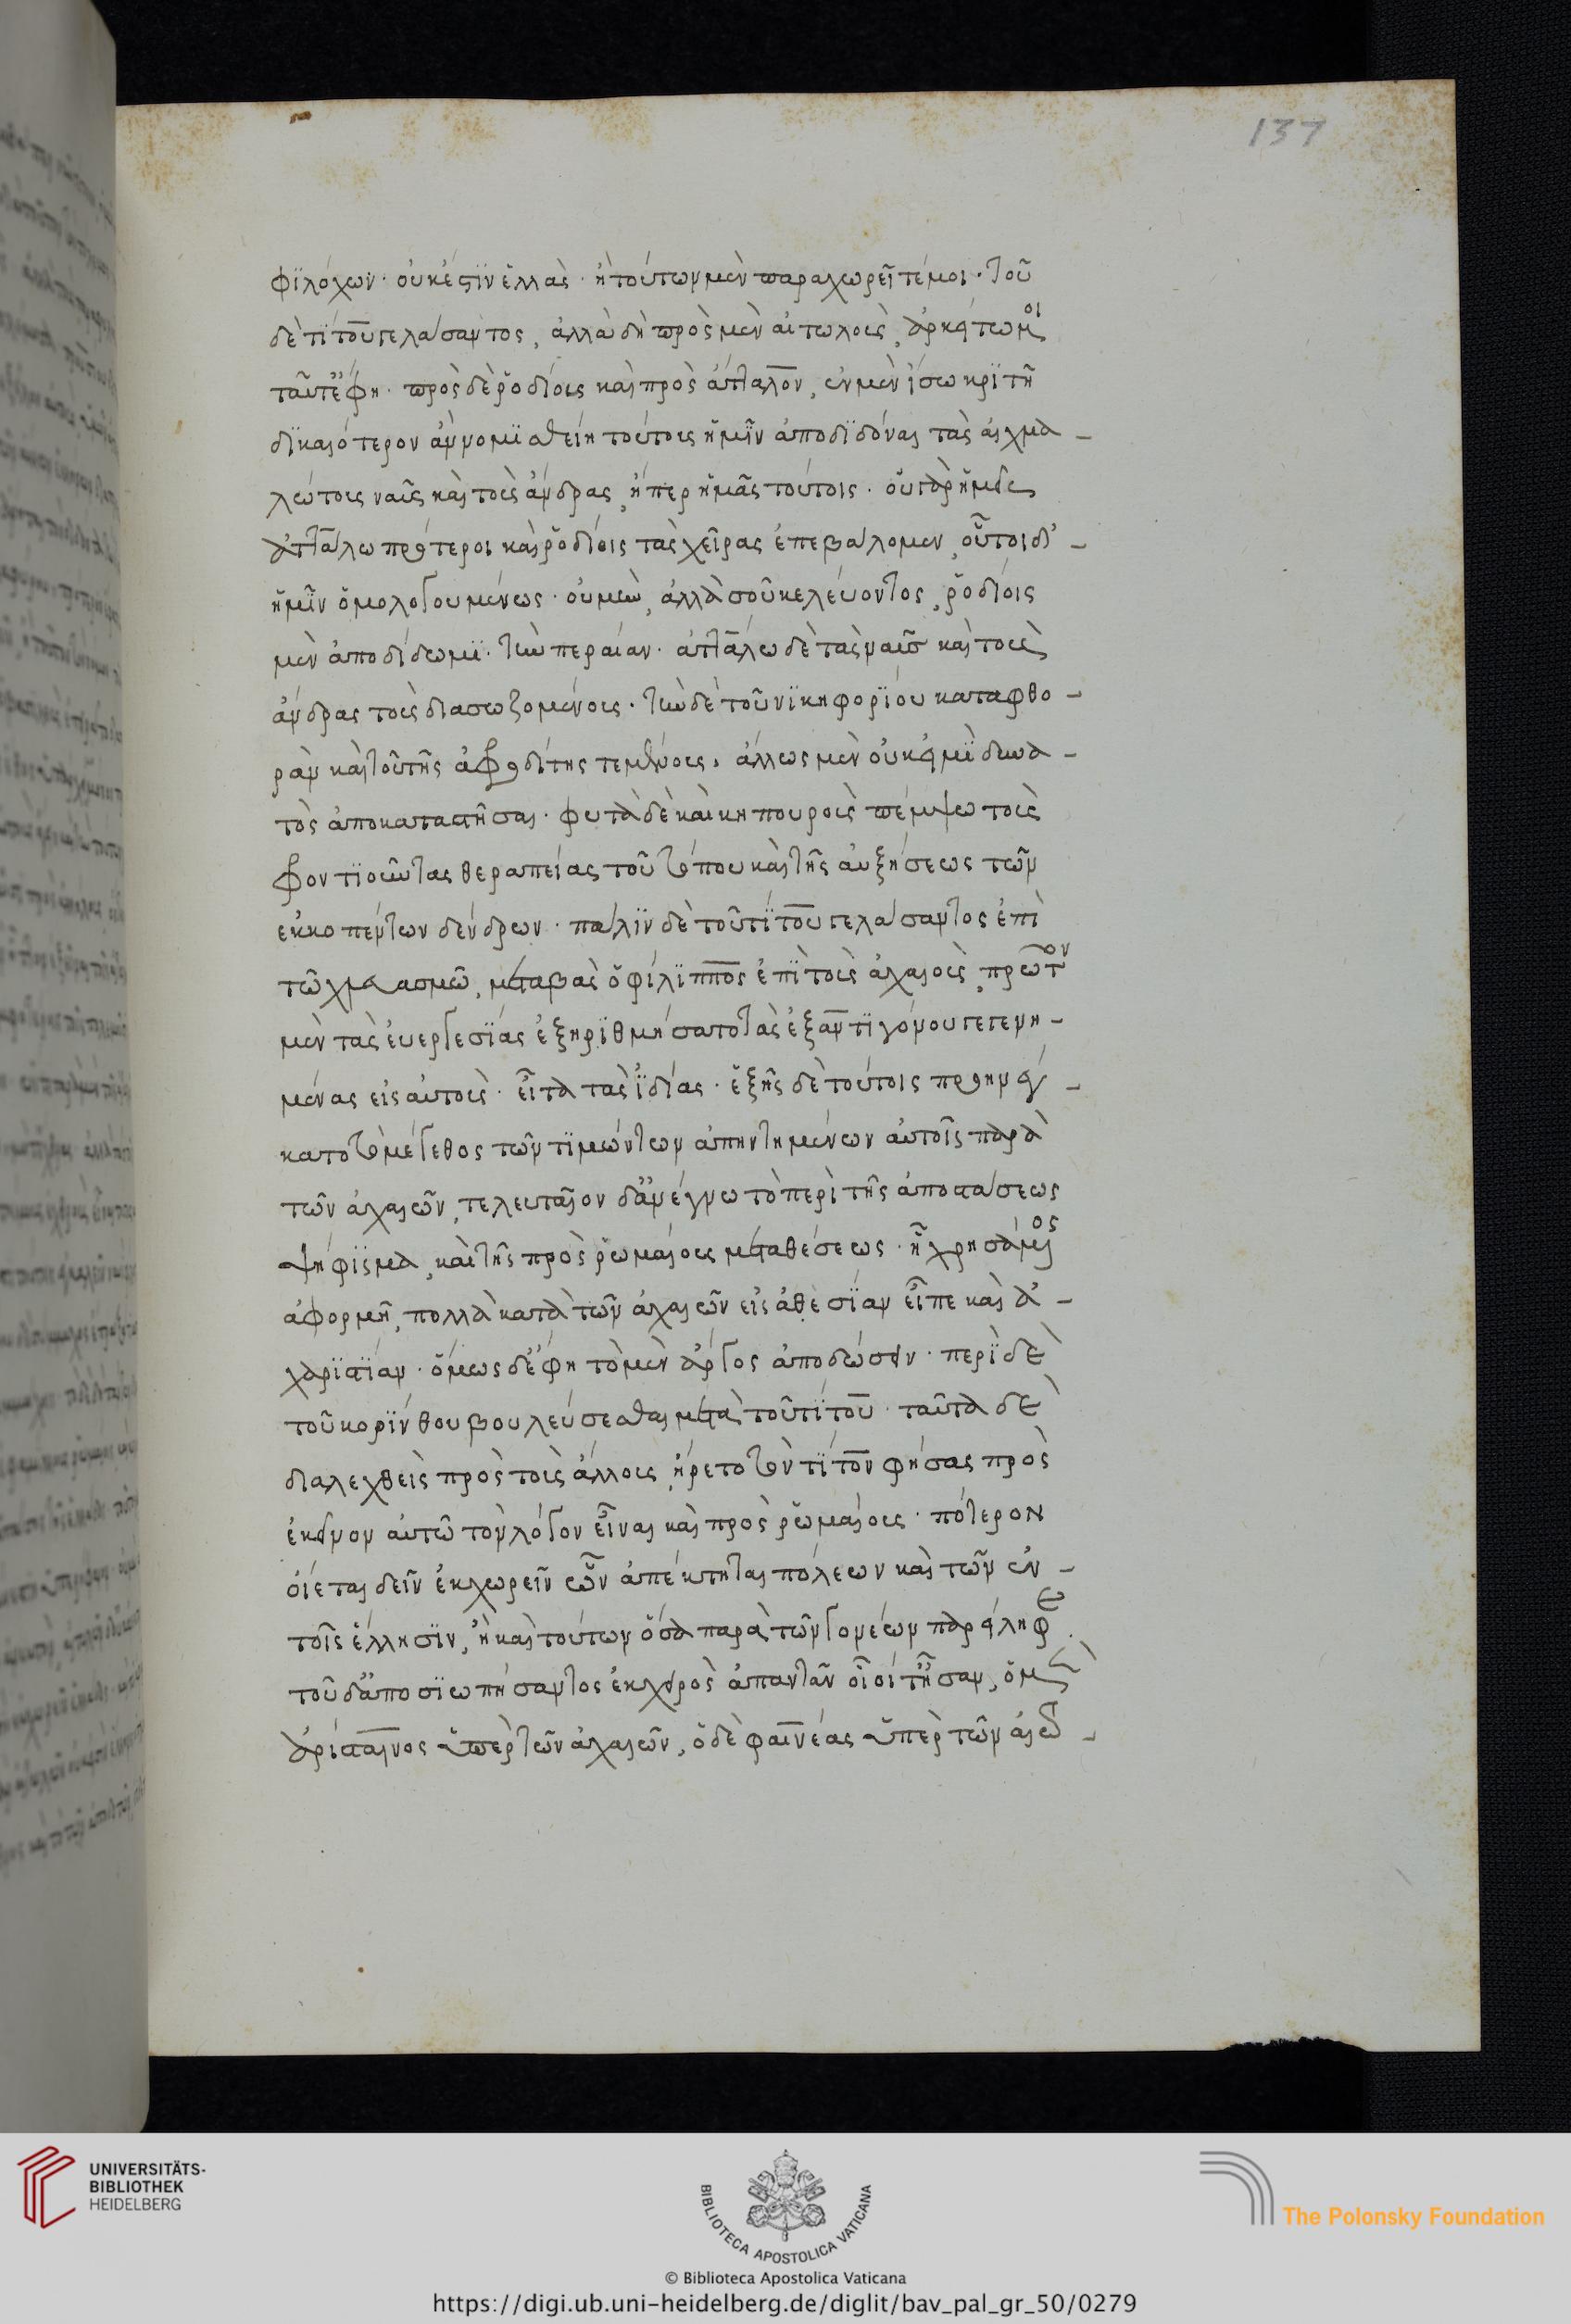 137
φϊλόχων· οὐκέστϊν ἑλλὰς· ἢ τούτων μὲν παραχωρεῖτέ μοι· τοῦ
δὲ τϊτου γελάσαντος, ἀλλὰ δὴ πρὸς μὲν αἰτωλοὺς, ἀρκείτω μοι
ταῦτ ἔφη· πρὸς δὲ ῥοδίους καὶ πρὸς ἄτταλον, ἐν μὲν ἴσω κρϊτῆ
δϊκαιότερον ἂν νομϊσθείη τούτους ἡμῖν ἀποδϊδόναι τὰς αἰχμα-
λώτους ναῦς καὶ τοὺς ἄνδρας, ἤπερ ἡμᾶς τούτοις. οὐ γὰρ ἡμεῖς
ἀττάλω πρότεροι καὶ ῥοδίοις τὰς χεῖρας ἐπεβάλομεν, οὗτοι δ'
ἡμῖν ὁμολογουμένως· οὐ μὴν, ἀλλὰ σοῦ κελεύοντος, ῥοδίοις
μὲν ἀποδίδωμϊ· τὴν περαίαν· ἀττάλω δὲ τὰς ναῦς καὶ τοὺς
ἄνδρας τοὺς διασωζομένους. τὴν δὲ τοῦ νϊκηφορϊου καταφθο-
ρὰν καὶ τοῦ τῆς ἀφροδίτης τεμένους, ἄλλως μὲν οὐκ εἰμϊ δυνα-
τὸς ἀποκαταστῆσαι· φυτὰ δὲ καὶ κηπουροὺς πέμψω τοὺς
φροντϊοῦντας θεραπείας τοῦ τόπου καὶ τῆς αὐξήσεως τῶν
ἐκκοπέντων δένδρων· πάλϊν δὲ τοῦ τϊτου γελάσαντος ἐπὶ
τῶ χλευασμῶ, μεταβὰς ὁ φίλϊππος ἐπϊ τοὺς ἀχαιοὺς, πρῶτον
μὲν τὰς εὐεργεσϊας ἐξηρϊθμήσατο τὰς ἐξ ἀντϊγόνου γεγενη-
μένας εἰς αὐτοὺς· εἶτα τὰς ἰδίας· ἑξῆς δὲ τούτοις προηνέγ-
κατο τὸ μέγεθος τῶν τϊμῶν τῶν ἀπηντημένων αὐτοῖς παρὰ
τῶν ἀχαιῶν, τελευταῖον δ ἀνέγνω τὸ περὶ τῆς ἀποστάσεως
ψήφϊσμα, καὶ τῆς πρὸς ῥωμαίους μεταθέσεως· ἧ χρησάμενος
ἀφορμῆ, πολλὰ κατὰ τῶν ἀχαιῶν εἰς ἀθεσϊαν εἶπε καὶ ἀ-
χαρϊστϊαν· ὅμως δ ἔφη τὸ μὲν ἄργος ἀποδώσειν· περϊ δὲ
τοῦ κορϊνθου βουλεύσεσθαι μετὰ τοῦ τϊτου· ταῦτα δὲ
διαλεχθεὶς πρὸς τοὺς ἄλλους, ἤρετο τὸν τϊτον φήσας πρὸς
ἐκεῖνον αὐτῶ τὸν λόγον εἶναι καὶ πρὸς ῥωμαίους· πότερον
οἴεται δεῖν ἐκχωρεῖν ὧν ἀπέκτηται πόλεων καὶ τῶν ἐν-
τοῖς ἕλλησϊν, ἢ καὶ τούτων ὅσα παρὰ τῶν γονέων παρείληφε.
τοῦ δ ἀποσϊωπήσαντος ἐκ χειρὸς ἀπαντᾶν οἷοί τ ἦσαν, ὁ μὲν
ἀρίσταινος ὑπὲρ τῶν ἀχαιῶν, ὁ δὲ φαινέας ὑπὲρ τῶν αἰτω-
UNIVERSITÄTS-
BIBLIOTHEK
HEIDELBERG
BIBLIOTECA APOSTOLICA VATICANA
The Polonsky Foundation
© Biblioteca Apostolica Vaticana
https://digi.ub.uni-heidelberg.de/diglit/bav_pal_gr_50/0279